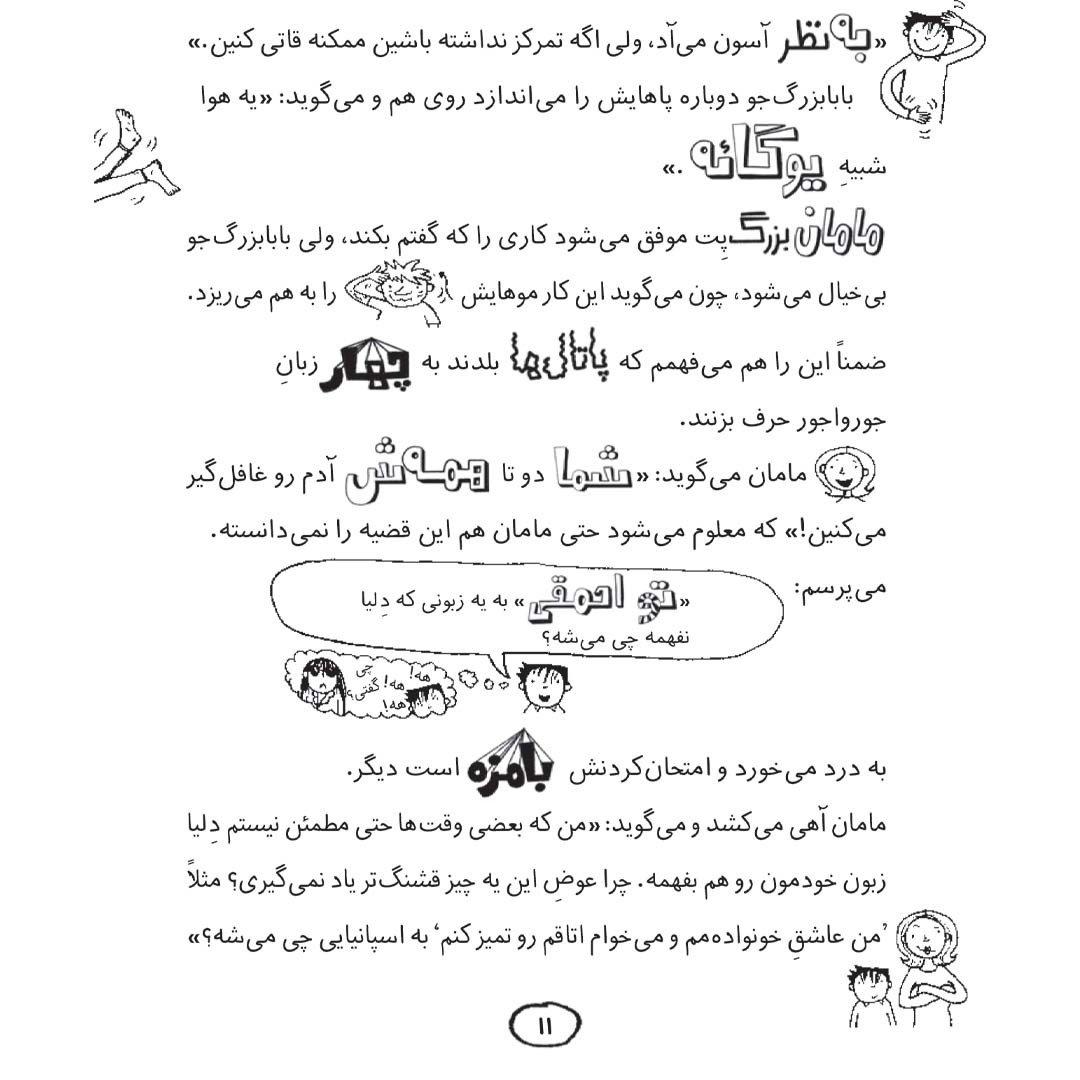 «به نظر آسون می‌آد، ولی اگه تمرکز نداشته باشین ممکنه قاتی کنین.»
بابابزرگ‌جو دوباره پاهایش را می‌اندازد روی هم و می‌گوید: «یه هوا
شبیهِ یوگائه.»
مامان‌بزرگ‌پِت موفق می‌شود کاری را که گفتم بکند، ولی بابابزرگ‌جو
بی‌خیال می‌شود، چون می‌گوید این کار موهایش را به هم می‌ریزد.
ضمناً این را هم می‌فهمم که پاتال‌ها بلدند به چهار زبانِ
جورواجور حرف بزنند.
مامان می‌گوید: «شما دو تا همه‌ش آدم رو غافل‌گیر
می‌کنین!» که معلوم می‌شود حتی مامان هم این قضیه را نمی‌دانسته.
می‌پرسم:
«تو احمقی» به یه زبونی که دِلیا
نفهمه چی می‌شه؟
چی گفتی؟
هه! هه! هه!
به درد می‌خورد و امتحان‌کردنش بامزه است دیگر.
مامان آهی می‌کشد و می‌گوید: «من که بعضی وقت‌ها حتی مطمئن نیستم دِلیا
زبون خودمون رو هم بفهمه. چرا عوضِ این یه چیز قشنگ‌تر یاد نمی‌گیری؟ مثلاً
’من عاشقِ خونواده‌مم و می‌خوام اتاقم رو تمیز کنم‘ به اسپانیایی چی می‌شه؟»
۱۱